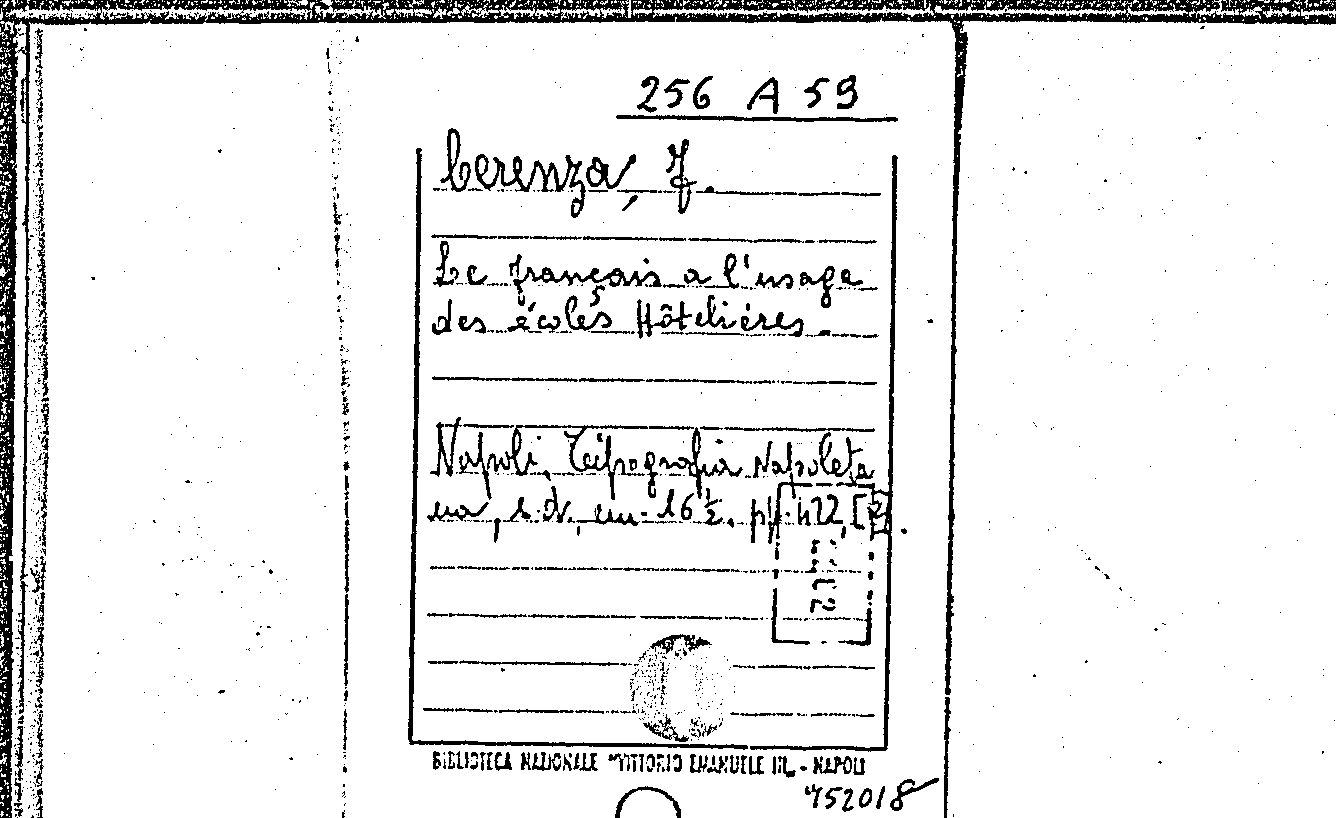 256 A 59
Cerenza, J.
Le français a l'usage
des écoles Hôtelières.
Napoli, Tipografia Napoleta
na, s.d., cm. 16 ½. pp. 422, [2].
BIBLIOTECA NAZIONALE "VITTORIO EMANUELE III„ - NAPOLI
752018